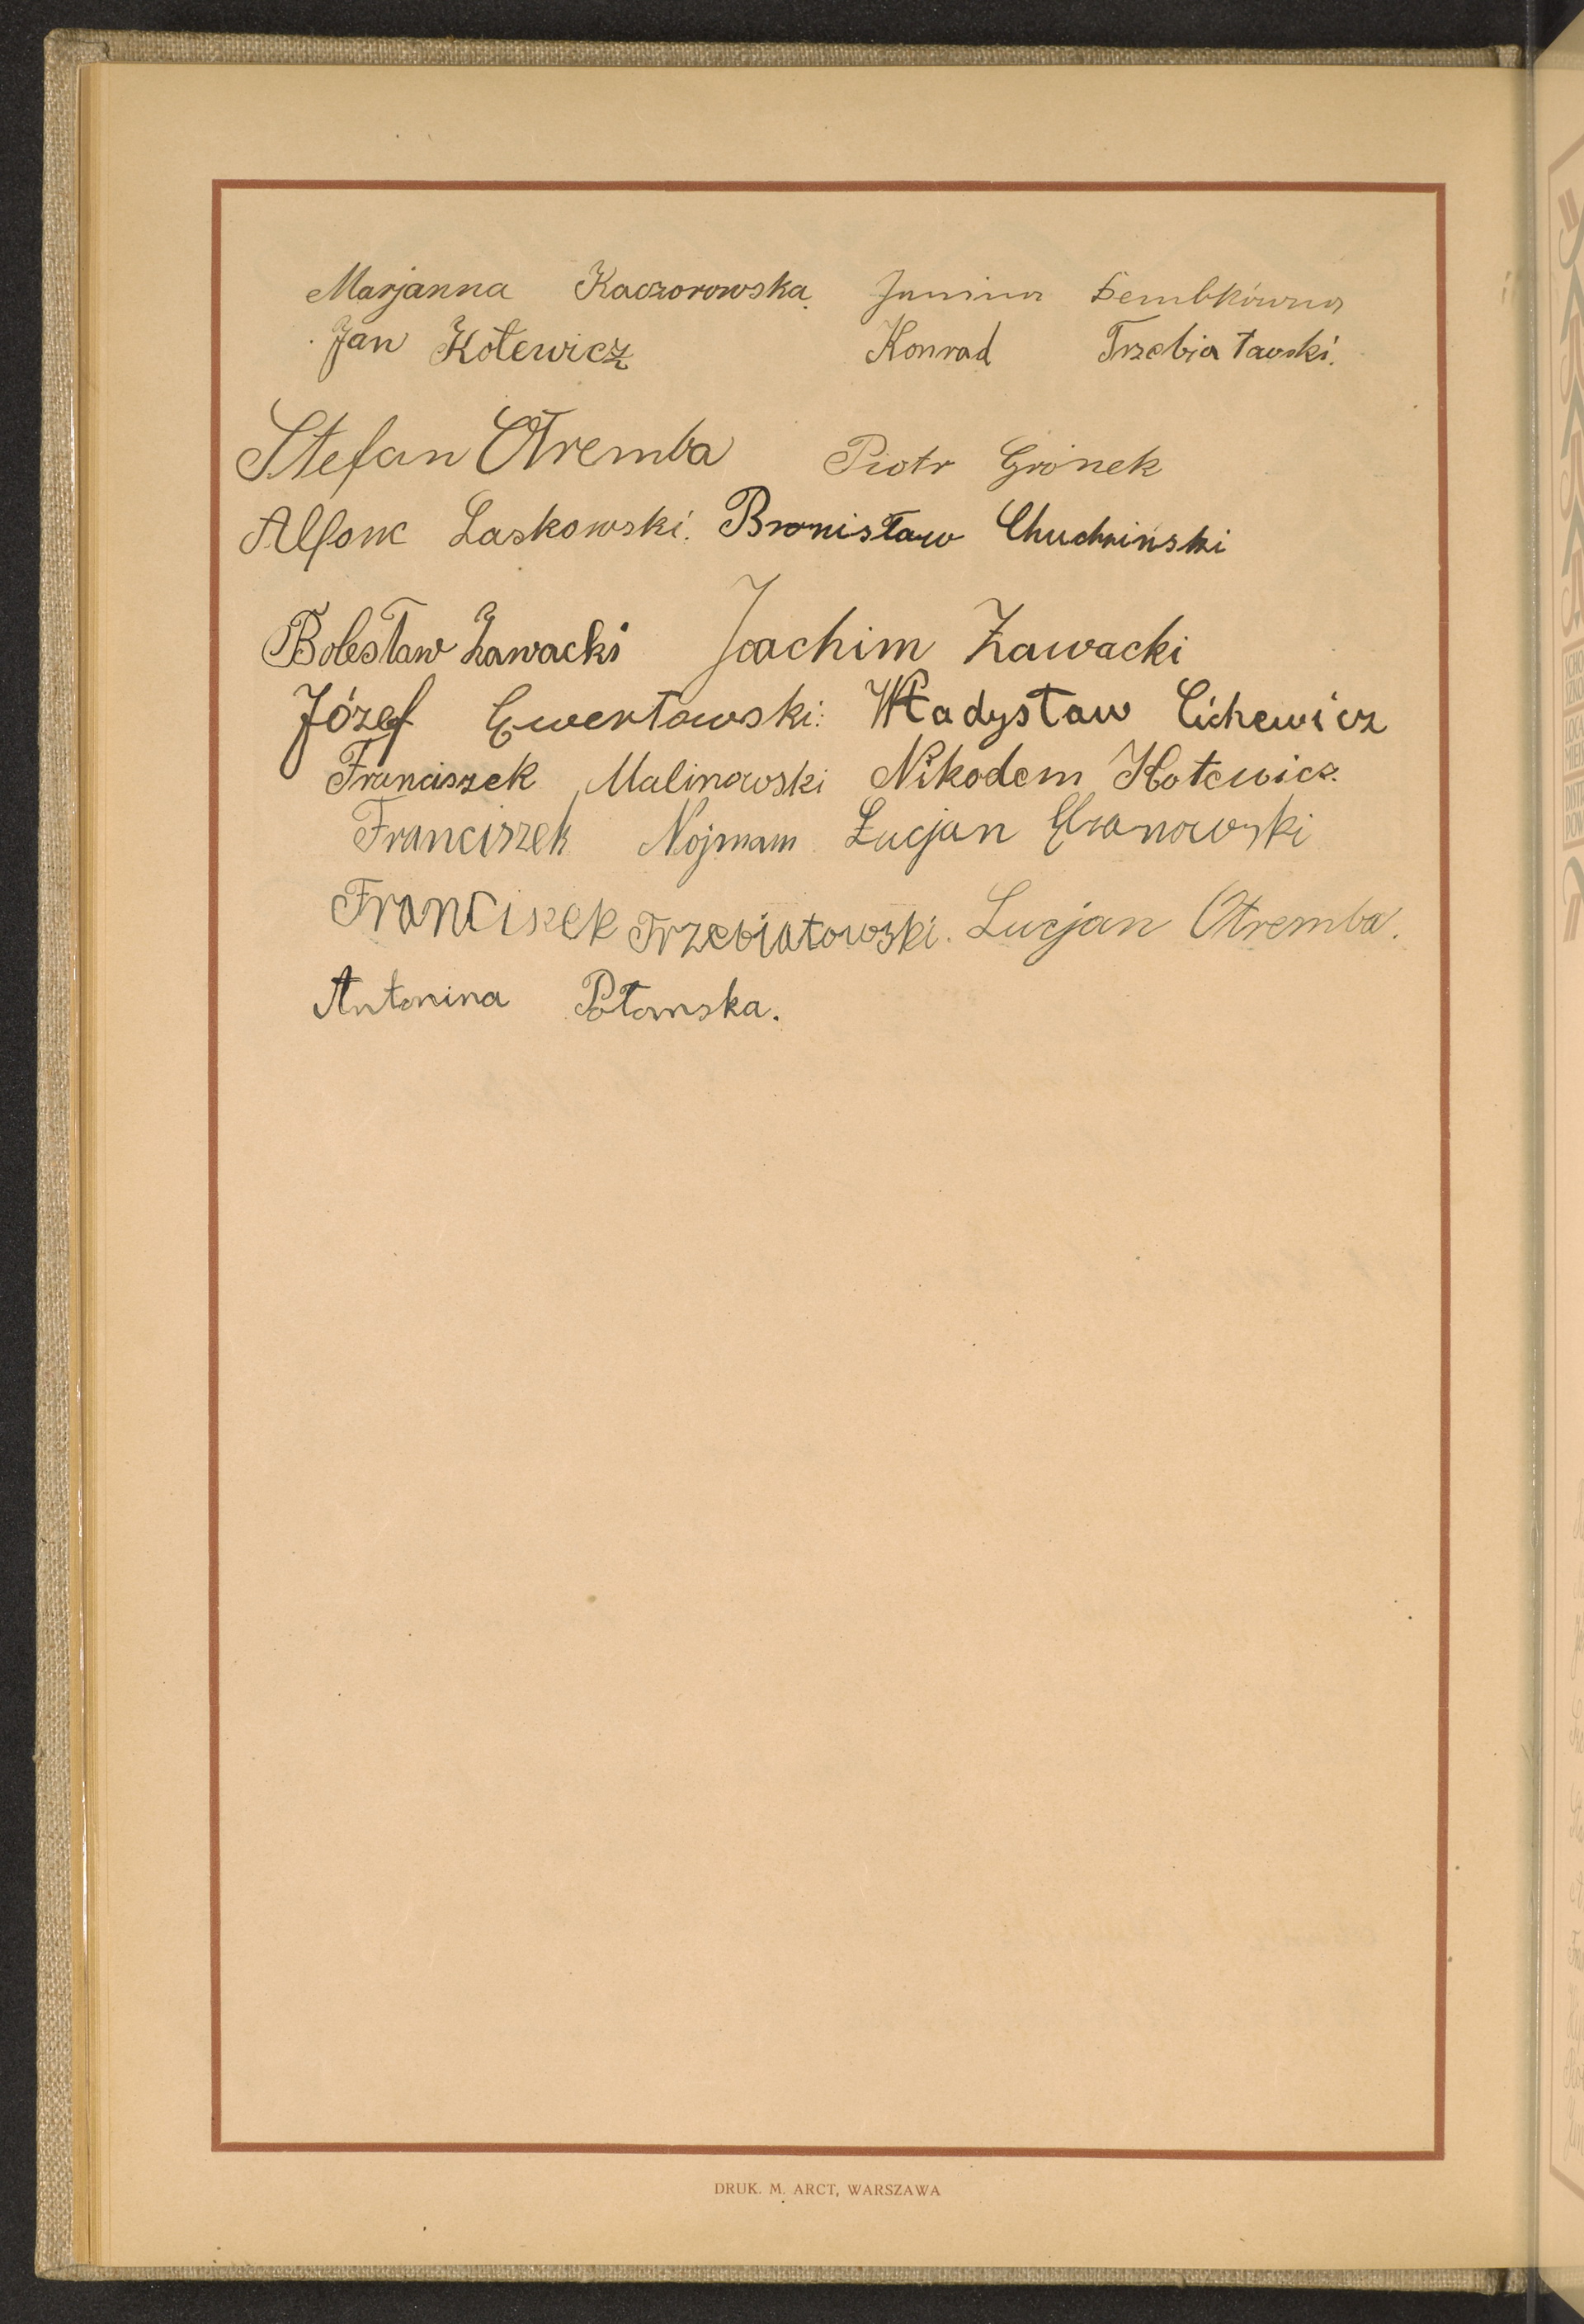 Marjanna Kaczorowska Janina Dembkówna
Jan Kotewicz Konrad Trzebiatowski.
Stefan Otremba Piotr Gronek
Alfons Laskowski. Bronisław Chudziński
Bolesław Zawacki Joachim Zawacki
Józef Ewertowski. Władysław Cichewicz
Franciszek Malinowski Nikodem Kotewicz.
Franciszek Nojmam Łucjan
Franciszek Trzebiatowski. Lucjan Otremba.
Antonina Potomska.
DRUK. M. ARCT, WARSZAWA